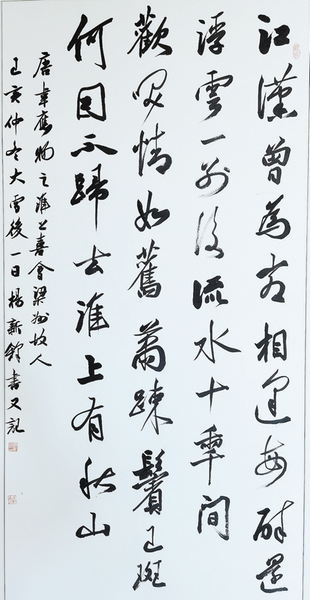 江漢曾為客相逢每醉還
浮雲一別後流水十秊間
歡笑情如舊蕭踈鬢已斑
何因不歸去淮上有秋山
唐韋應物之淮上喜會梁州故人
己亥仲冬大雪後一日楊新書又記